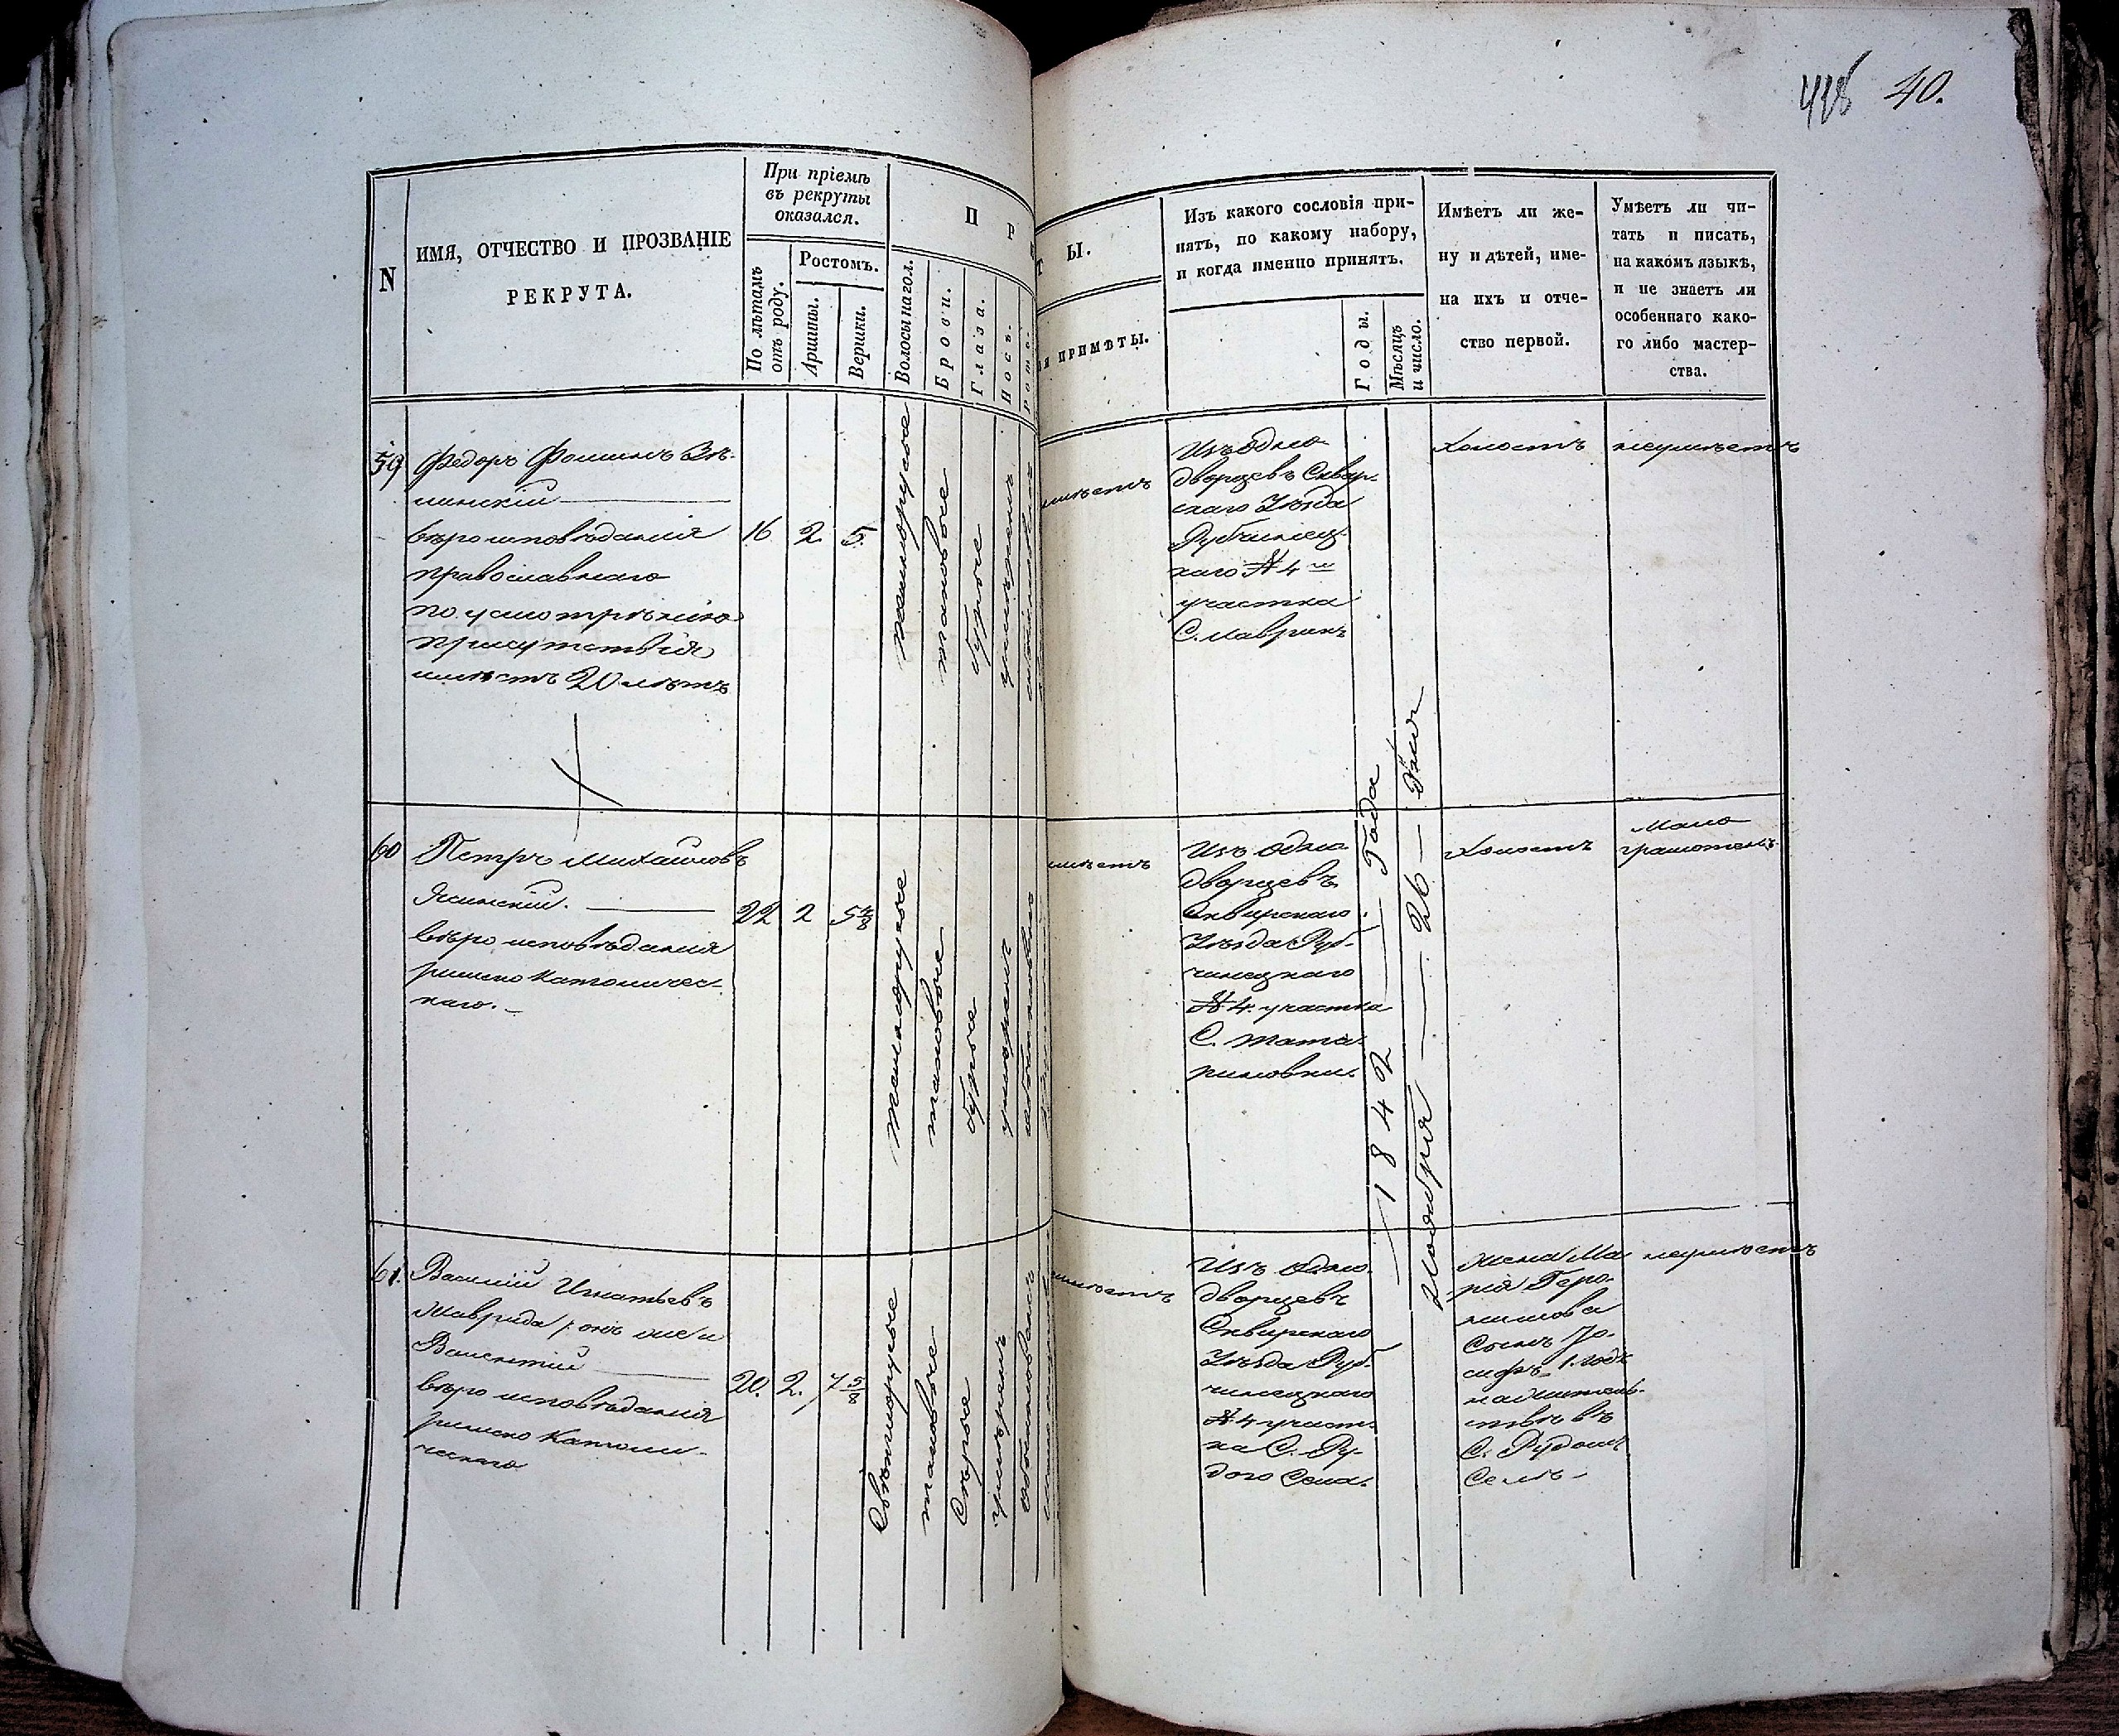 40.
N
ИМЯ, ОТЧЕСТВО И ПРОЗВАНІЕ
РЕКРУТА.
При пріемѣ
въ рекруты
оказался.
По лѣтамъ
отъ роду.
Ростомъ.
Аршины.
Вершки.
П Р
Волосы на гол.
Брови.
Глаза.
Носъ.
Ротъ.
Т Ы.
ПРИМѢТЫ.
Изъ какого сословія при-
нятъ, по какому набору,
и когда именно принятъ.
Годы.
Мѣсяцъ
и число.
Имѣетъ ли же-
ну и дѣтей, име-
на ихъ и отче-
ство первой.
Умѣетъ ли чи-
тать и писать,
на какомъ языкѣ,
и не знаетъ ли
особеннаго како-
го либо мастер-
ства.
59
Федоръ Фоминъ
вѣроисповѣданія
православнаго
по усмотрѣнію
присутствія
имѣетъ 20 лѣтъ
16
2
5.
темнорусые
таковые
бурые
умѣренъ
имѣетъ
Изъ одно-
дворцевъ Сквир-
скаго Уѣзда
Рубчинец-
каго № 4го
участка
С. Маврикъ
холостъ
неумѣетъ
60
Петръ Михаиловъ
Ясинскій.
вѣроисповѣданія
римско католичес-
каго.
22
2
темнорусые
таковые
бурые
умѣренъ
имѣетъ
Изъ одно
дворцевъ
Сквирскаго
Уѣзда Руб-
чинецкаго
№ 4. участка
С. Тата-
риновки.
1842 Года
Ноября 26 дня
Холостъ
мало
грамотенъ
61.
Василій Игнатьевъ
Маврида /: онъ же и
Валентій
вѣроисповѣданія
римско католи-
ческаго
20.
2.
7 5/8
Свѣтлорусые
таковые
Сѣрые
умѣренъ
обыкновенной
имѣетъ
Изъ одно-
дворцевъ
Сквирскаго
Уѣзда Руб-
чинецкаго
№ 4 участ-
ка С. Ру-
дого Села.
Жена Ма
рія Геро-
нимова
Сынъ Іо-
сифъ 1. годъ
на житель-
ствѣ въ
С. Рудомъ
Селѣ
неумѣетъ